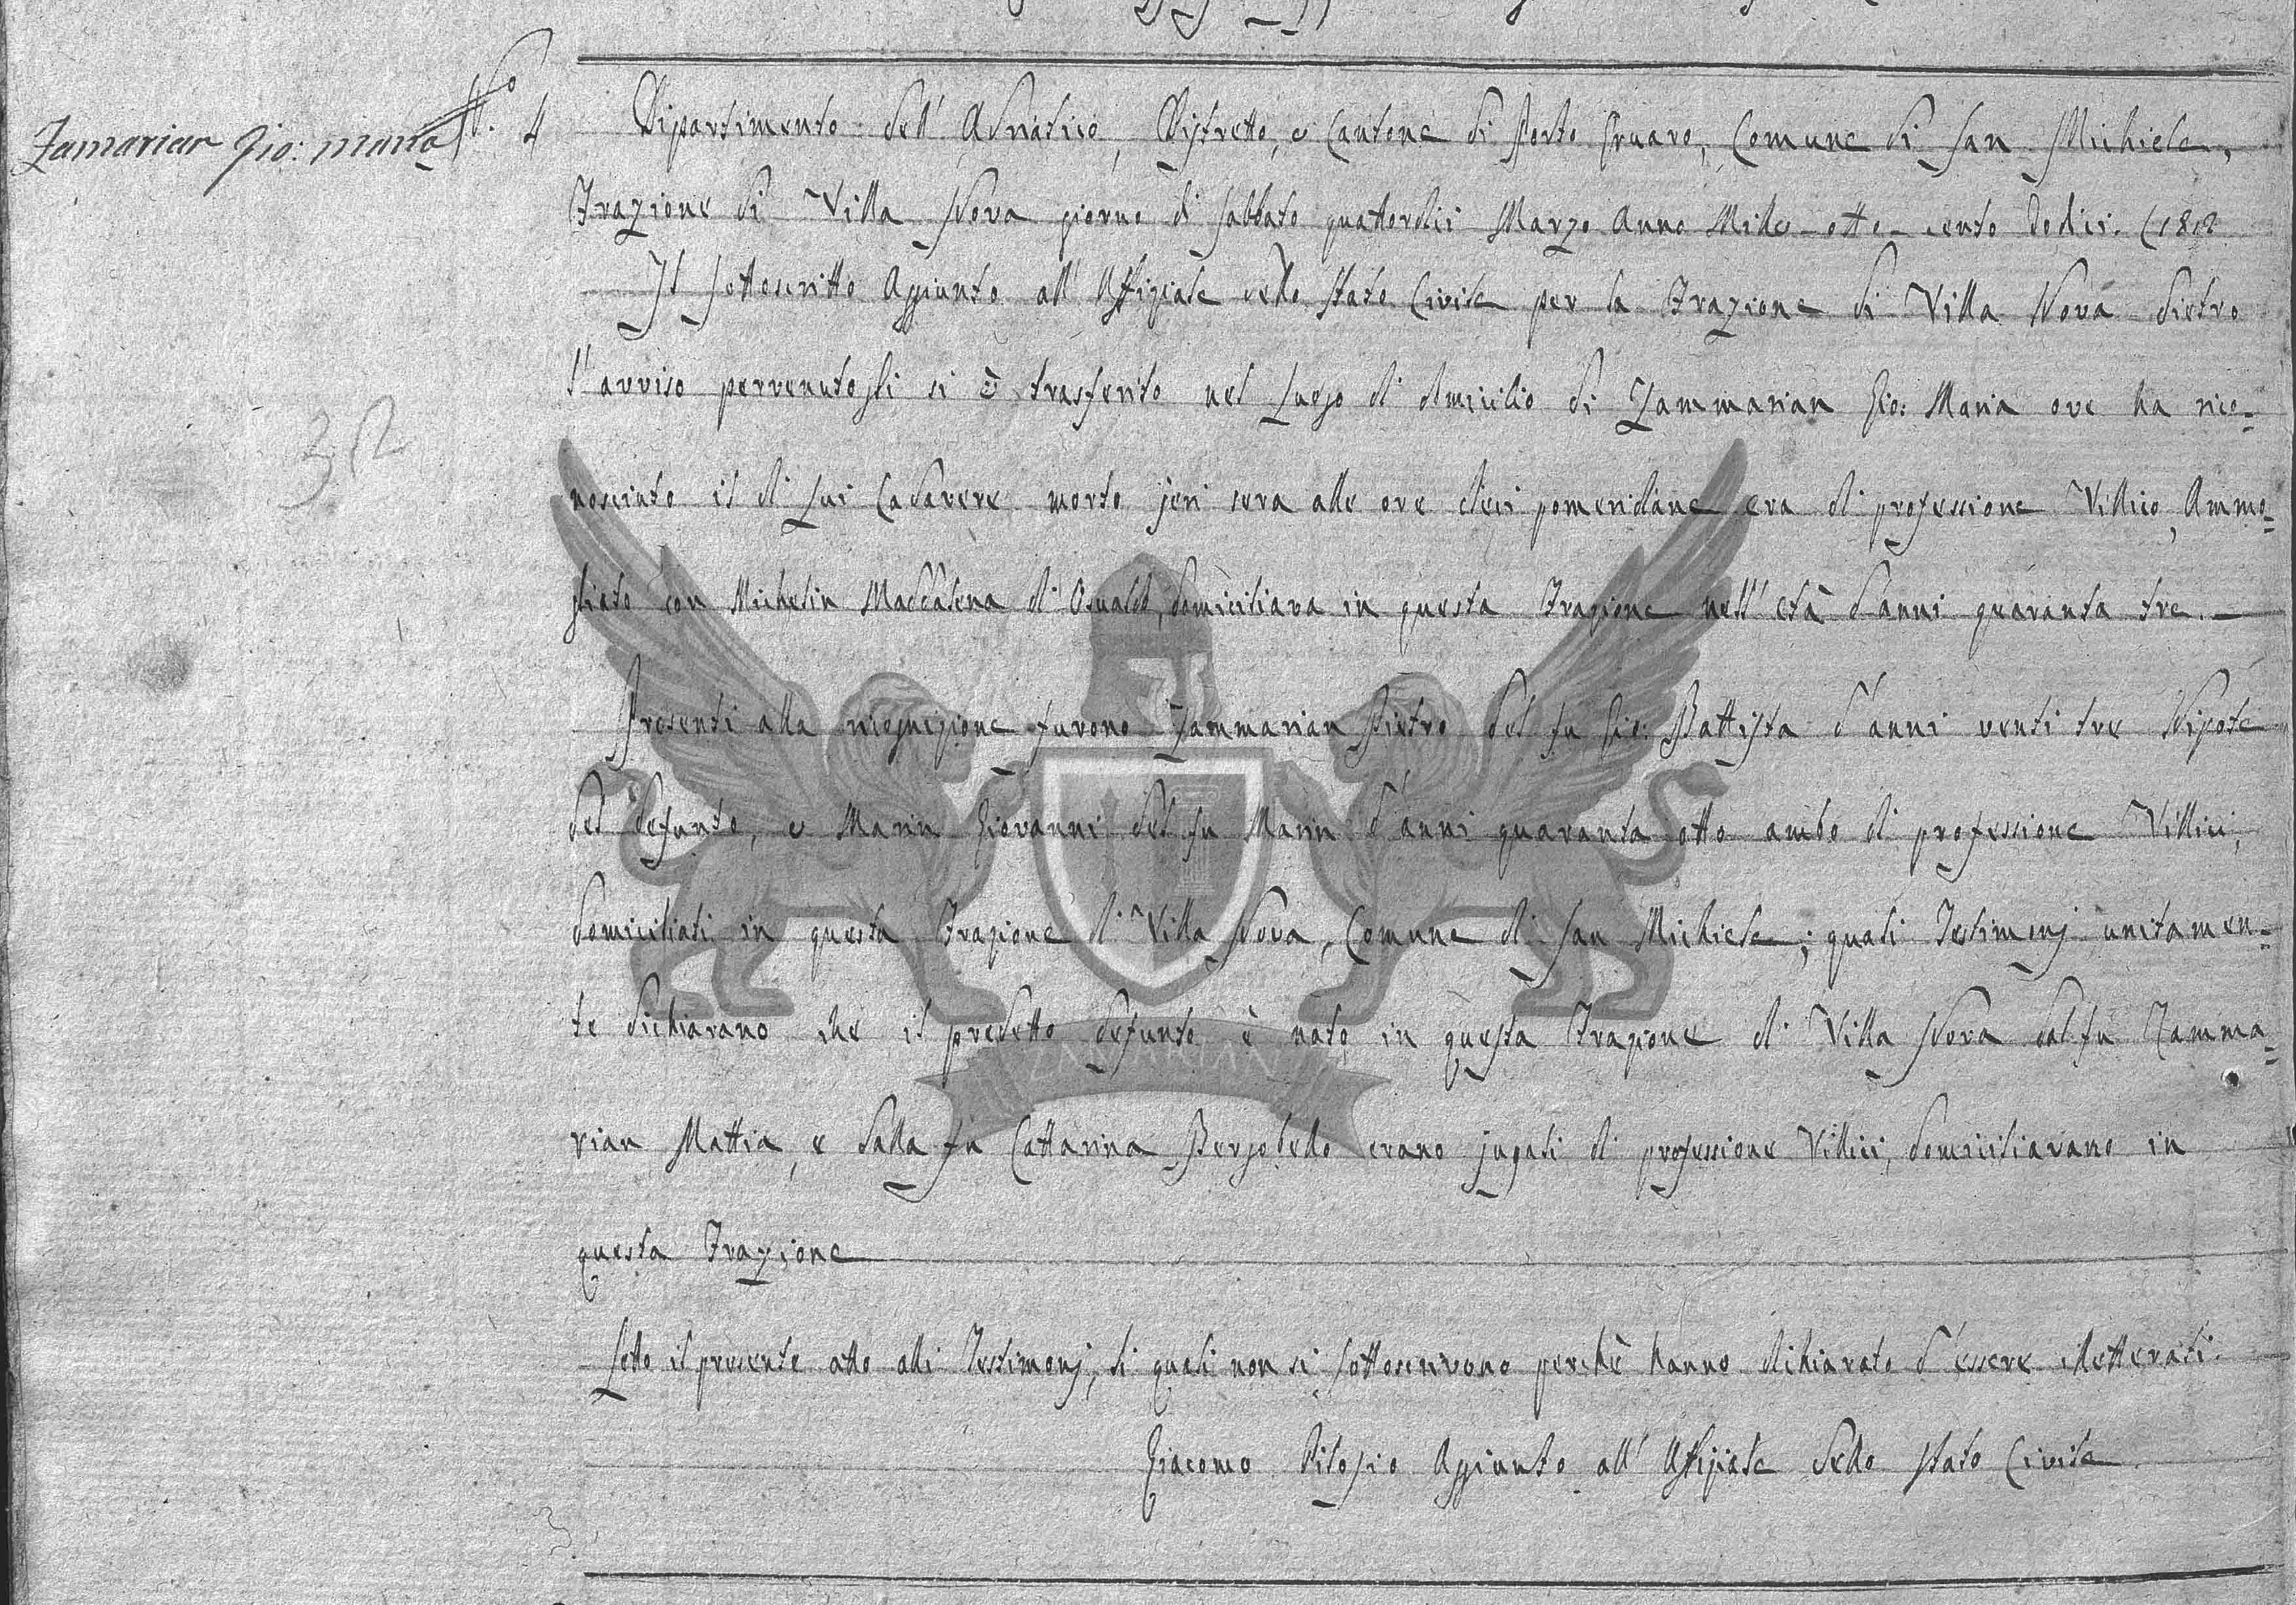 Zamarian Gio: Maria N.° 4
Dipartimento dell' Adriatico, Distretto, e Cantone di Porto Gruaro, Comune di San Michiele,
Frazione di Villa Nova giorno di Sabbato quattordici Marzo Anno Mille-otto-cento dodici. (1812
Il sottoscritto Aggiunto all' Uffiziale dello Stato Civile per la Frazione di Villa Nova dietro
l'avviso pervenutogli si è trasferito nel Luogo di domicilio di Zammarian Gio: Maria ove ha rico=
nosciuto il di Lui Cadavere morto jeri sera alle ore dieci pomeridiane era di professione Villico, Ammo=
gliato con Michelin Maddalena di Osualdo, domiciliava in questa Frazione nell' età d'anni quaranta tre. —
32
Presenti alla ricognizione furono Zammarian Pietro del fu Gio: Battista d'anni venti tre Nipote
del defunto, e Marin Giovanni del fu Marin d'anni quaranta otto ambo di professione Villici,
domiciliati in questa Frazione di Villa Nova, Comune di San Michiele; quali Testimonj unitamen=
te dichiarano che il predetto defunto è nato in questa Frazione di Villa Nova dal fu Zamma=
rian Mattia, e dalla fu Cattarina Bergobello erano jugali di professione Villici, domiciliavano in
questa Frazione
Letto il presente atto alli Testimonj, li quali non si sottoscrivono perchè hanno dichiarato d'essere illetterati.
Giacomo Pilosio Aggiunto all' Uffiziale dello Stato Civile